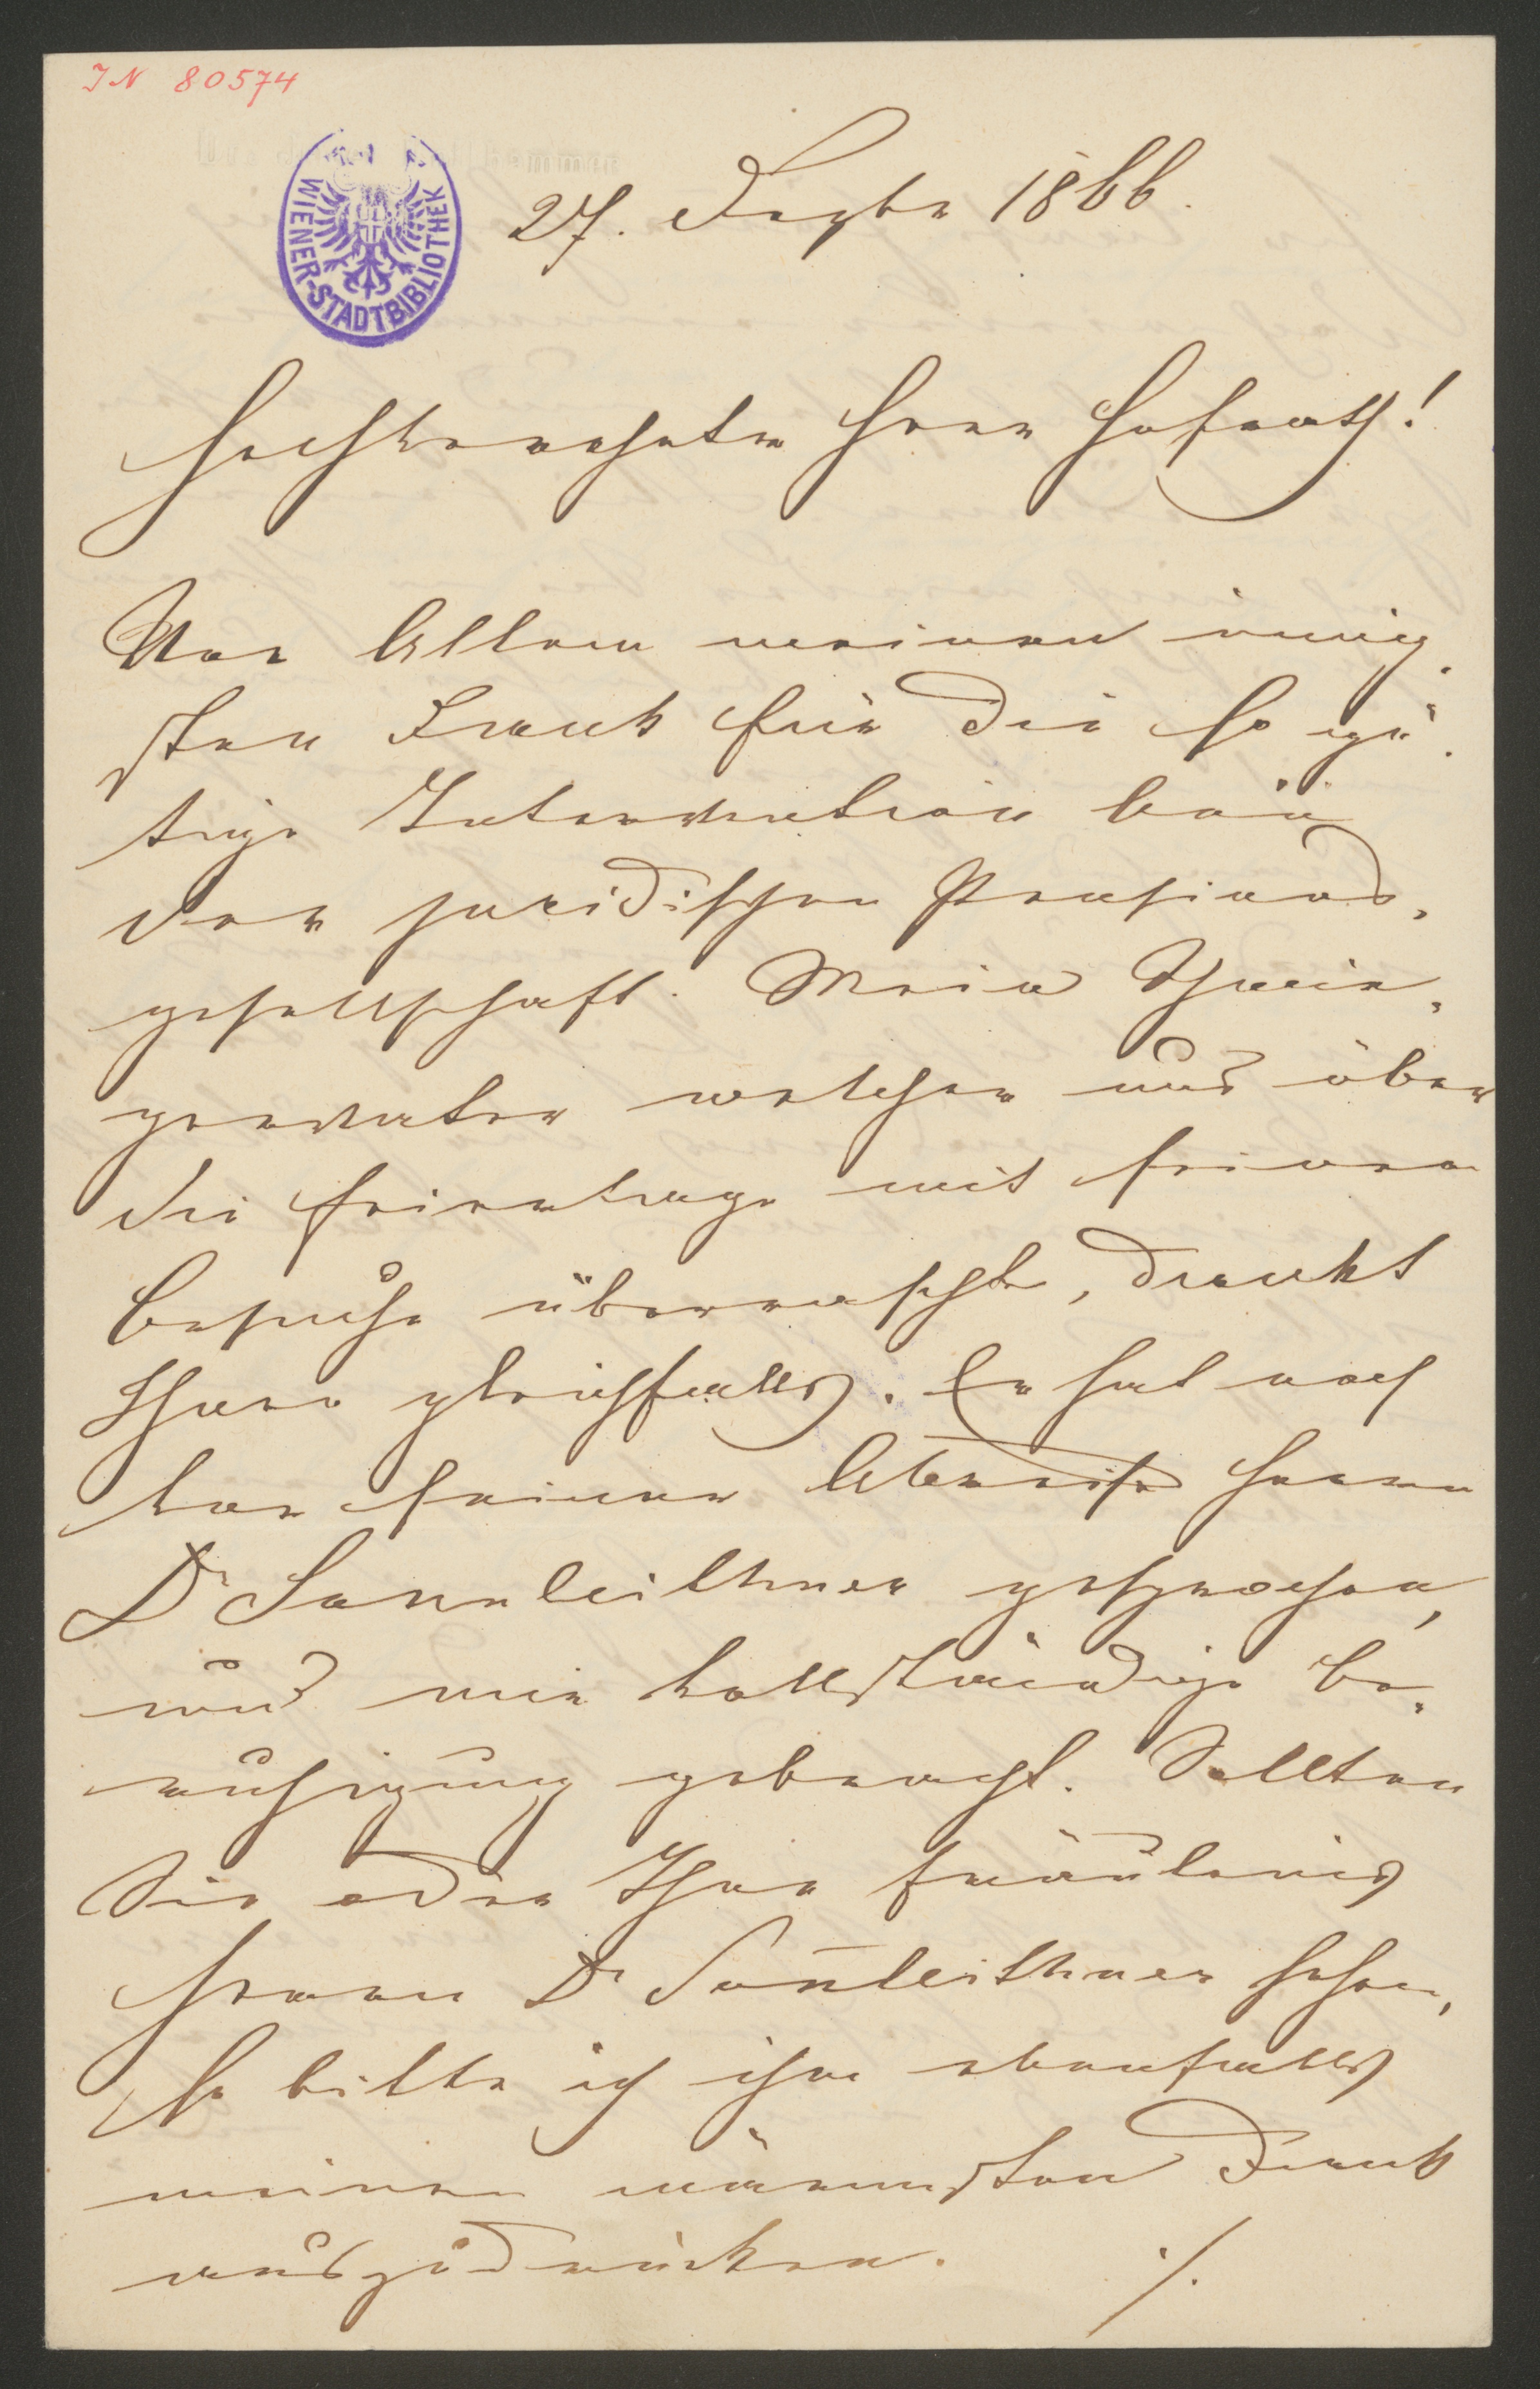 IN 80574
WIENER-STADTBIBLIOTHEK
27. Dezbr 1866.
Hochverehrter Herr Hofrath!
Vor Allem meinen innig-
sten Dank für die so gü-
tige Intervention bei
der juridischen Pensions-
gesellschaft. Mein Schwie-
gervater welcher uns über
die Feiertage mit seinem
Besuche überraschte, dankt
Ihnen gleichfalls. Er hat noch
vor seiner Abreise Herrn
Dr Sonnleithner gesprochen,
und mir vollständige Be-
ruhigung gebracht. Sollten
Sie oder Ihre Fräuleins
Herrn Dr Son̄leithner sehen,
so bitte ich ihm ebenfalls
meinen wärmsten Dank
auszudrücken. ./.